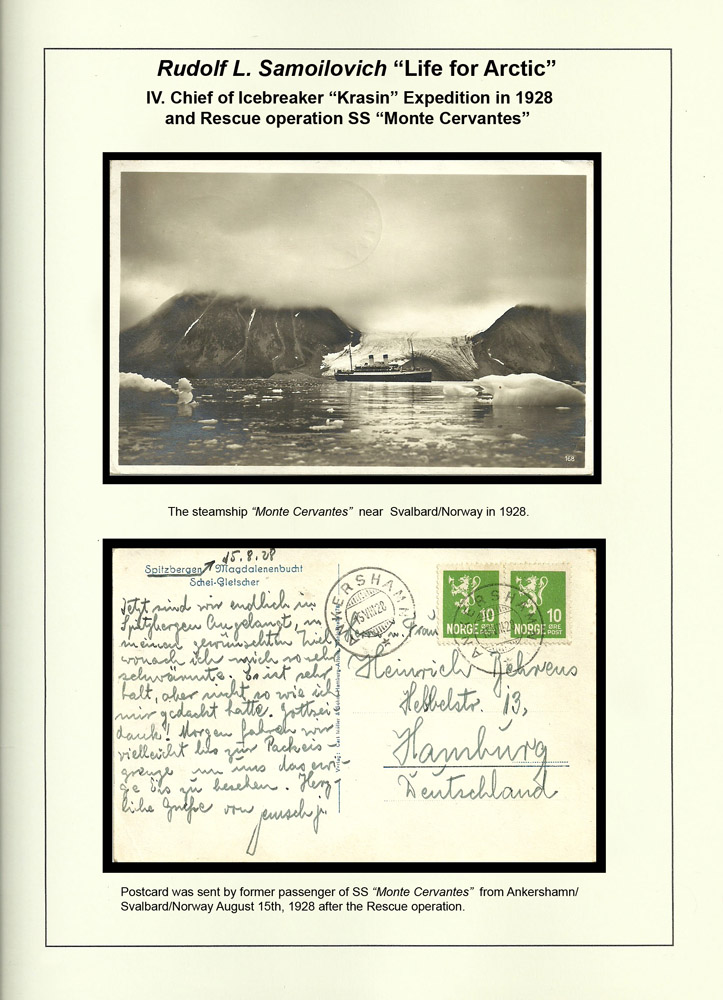 Rudolf L. Samoilovich “Life for Arctic”
IV. Chief of Icebreaker “Krasin” Expedition in 1928
and Rescue operation SS “Monte Cervantes”
168
The steamship “Monte Cervantes” near Svalbard/Norway in 1928.
15.8.28
Spitzbergen Magdalenenbucht
Schei-Gletscher
Jetzt sind wir endlich in
Spitzbergen angelangt, in
meinem gewünschten Ziel
wonach ich mich so sehr
schwärmte. Es ist sehr
kalt, aber nicht so wie ich
mir gedacht hatte. Gottsei
dank! Morgen fahren wir
vielleicht bis zur Packeis-
grenze um uns das ewi-
ge Eis zu besehen. Herz
liche Grüße von
ANKERSHAMN
15 VIII 28
NORGE 10 ØRE POST
NORGE 10 ØRE POST
ANKERSHAMN
u. Frau
Heinrich Behrens
Hebbelstr. 13,
Hamburg
Deutschland
Postcard was sent by former passenger of SS “Monte Cervantes” from Ankershamn/
Svalbard/Norway August 15th, 1928 after the Rescue operation.